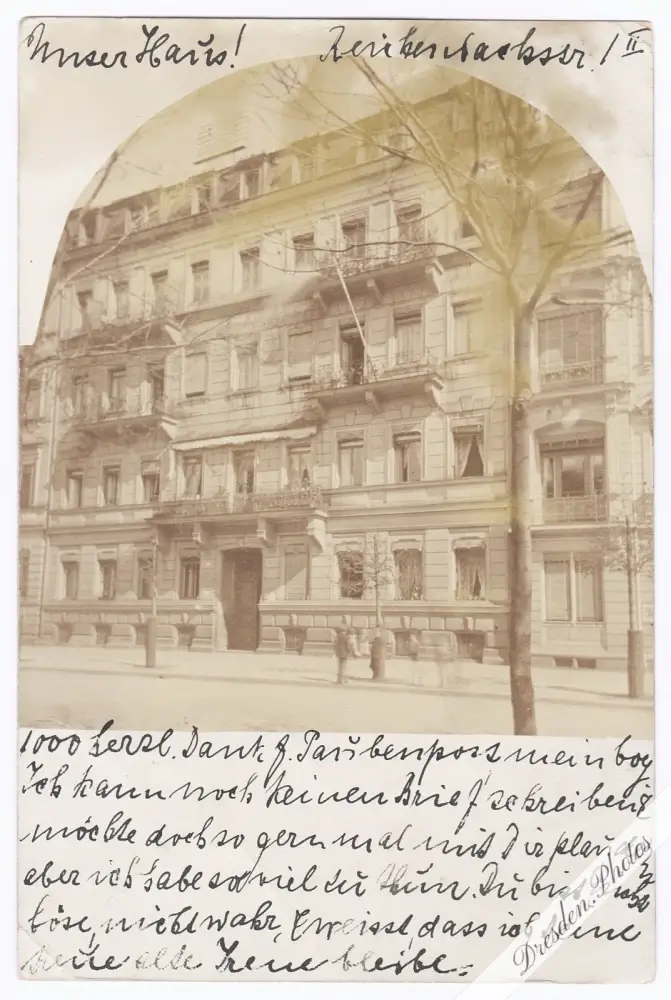 Unser Haus! Reichenbachstr. 1 II
1000 herzl. Dank f. Taubenpost mein boy
Ich kann noch keinen Brief schreiben,
möchte doch so gern mal mit Dir plau
aber ich habe so viel zu thun. Du bist
böse, nicht wahr, weisst, dass ich
treue alte Irene bleibe.
Dresden.Photos